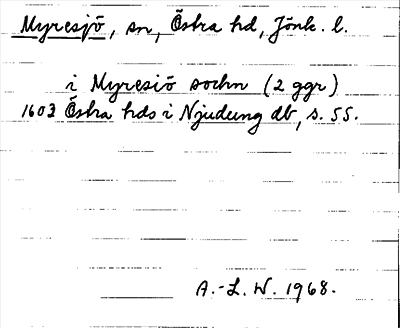 Myresjö, sn, Östra hd, Jönk. l.
i Myresiö sochn (2 ggr)
1603 Östra hds i Njudung db, s. 55.
A.-L. W. 1968.